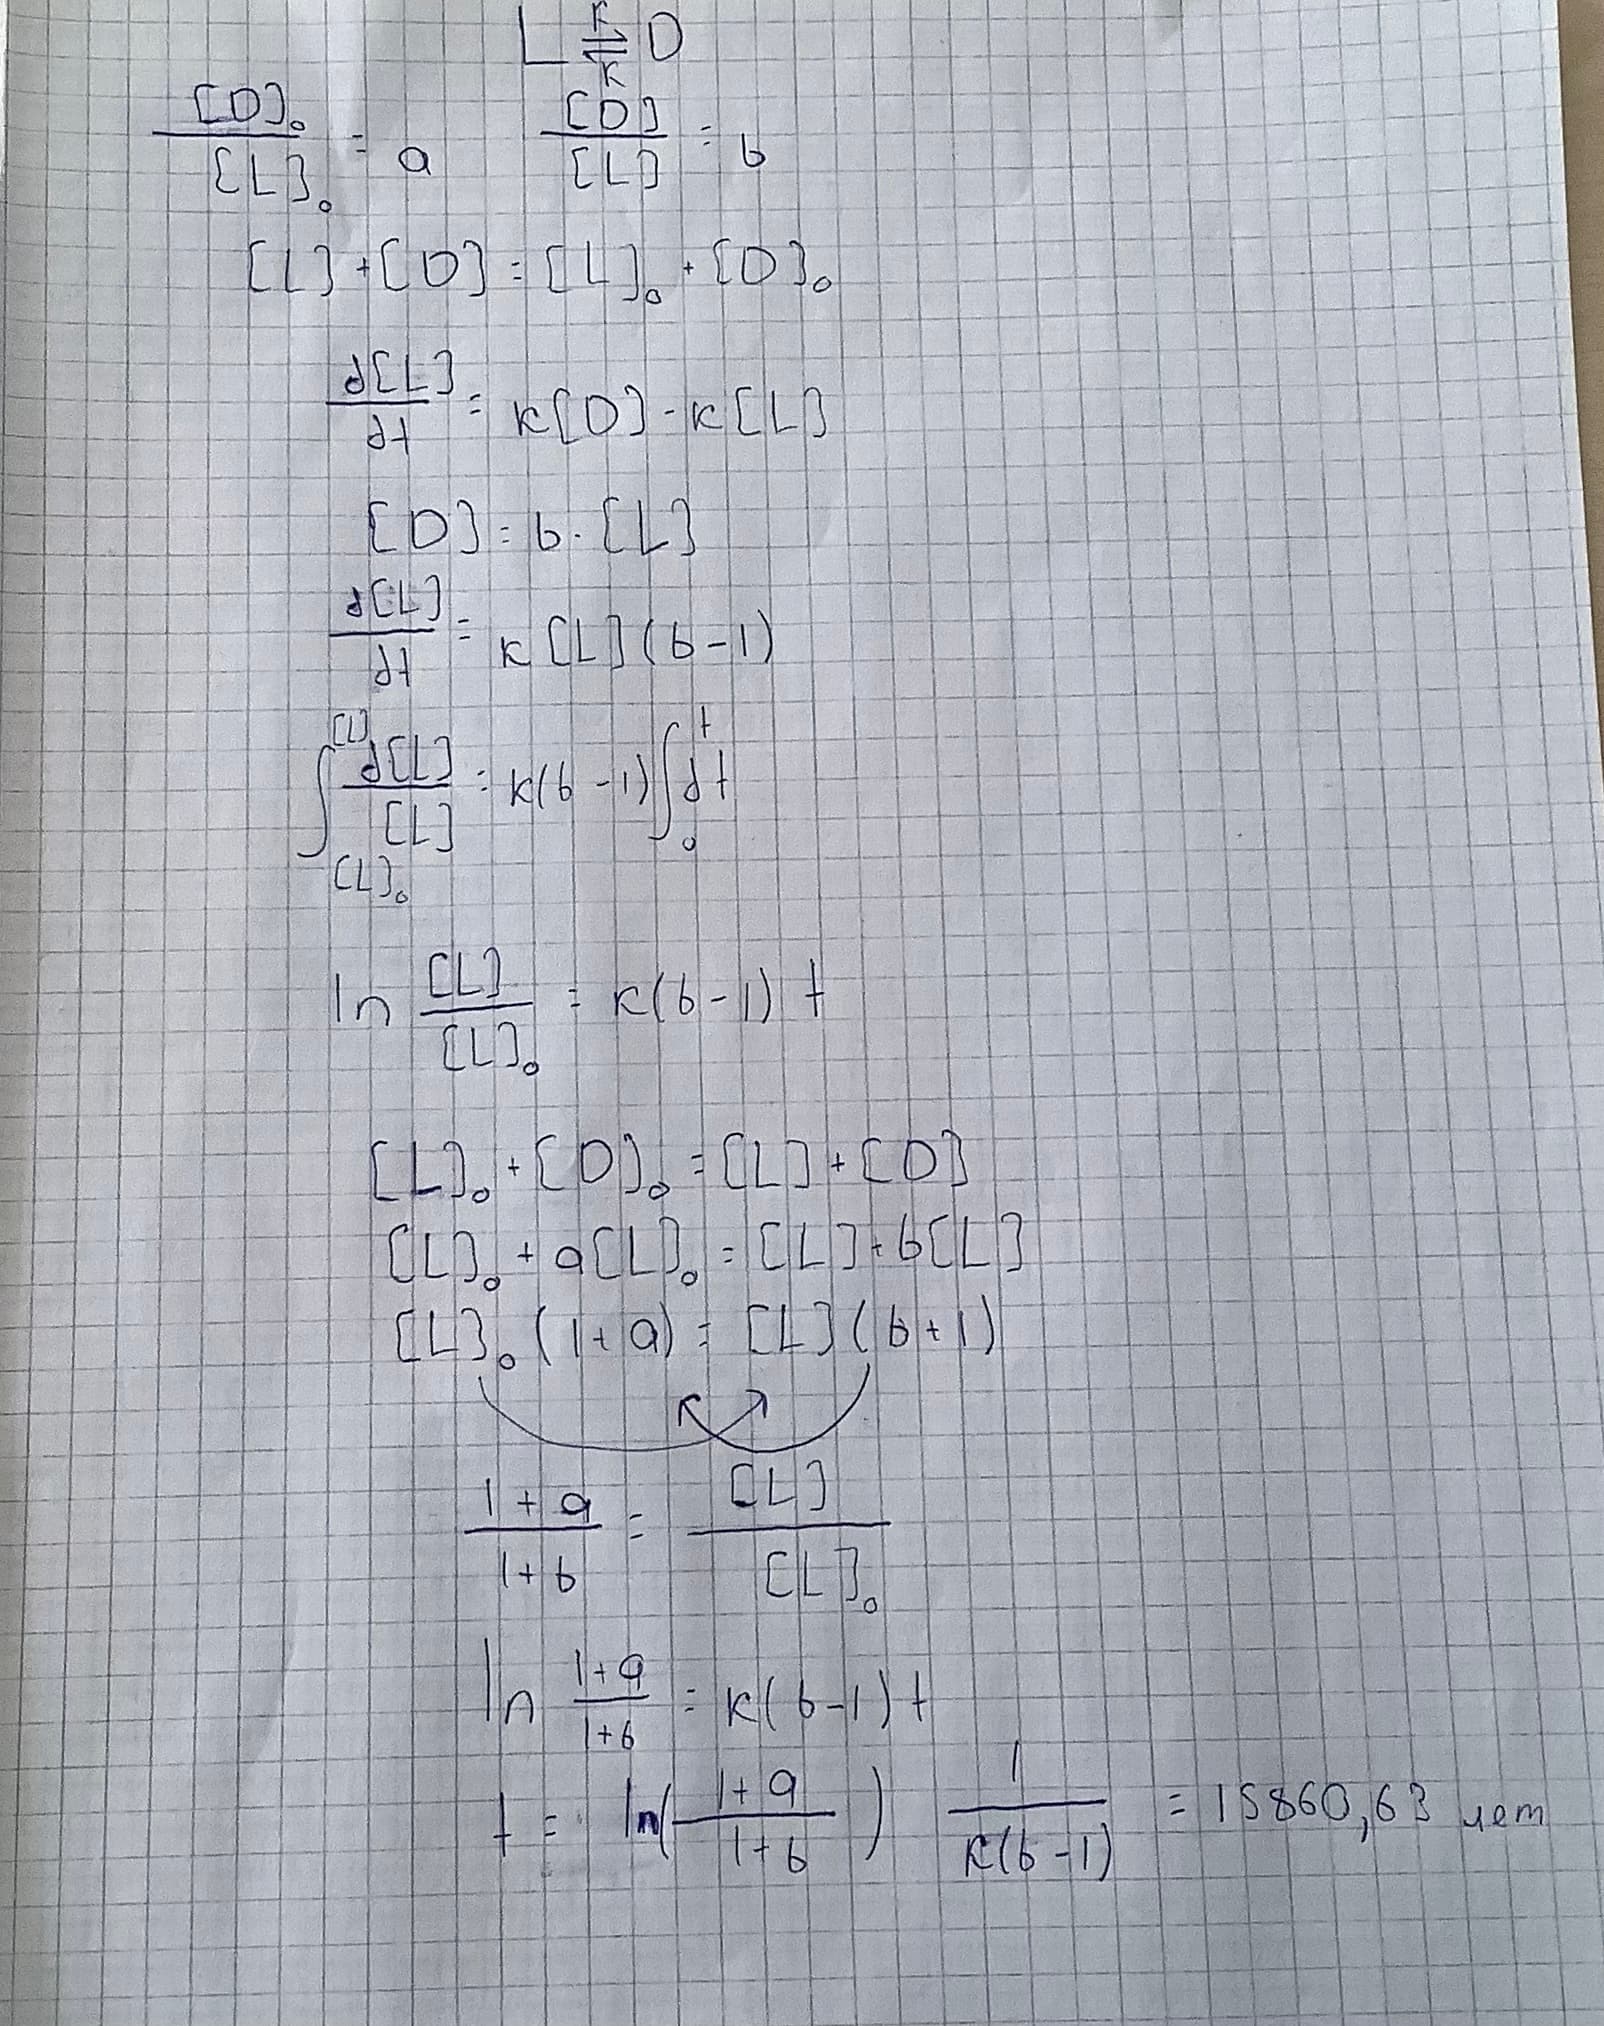 L ⇌ D
k
k
[D]₀/[L]₀ = a   [D]/[L] = b
[L] + [D] = [L]₀ + [D]₀
d[L]/dt = k[D] - k[L]
[D] = b · [L]
d[L]/dt = k[L](b-1)
∫_{[L]₀}^{[L]} d[L]/[L] = k(b-1) ∫_0^t dt
ln [L]/[L]₀ = k(b-1) t
[L]₀ + [D]₀ = [L] + [D]
[L]₀ + a[L]₀ = [L] + b[L]
[L]₀ (1+a) = [L] (b+1)
(1+a)/(1+b) = [L]/[L]₀
ln (1+a)/(1+b) = k(b-1) t
t = ln((1+a)/(1+b)) 1/(k(b-1)) = 15860,63 лет